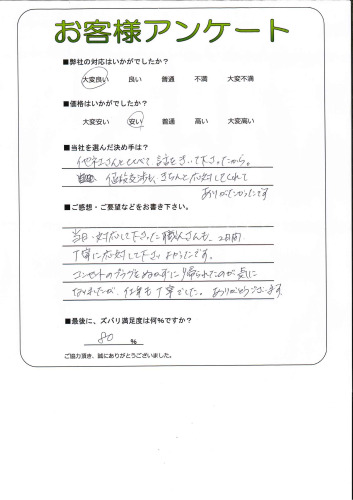 お客様アンケート
■弊社の対応はいかがでしたか?
大変良い 良い 普通 不満 大変不満
■価格はいかがでしたか?
大変安い 安い 普通 高い 大変高い
■当社を選んだ決め手は?
他社さんとくらべて 話をきいて下さったから。
値段交渉も、きちんと応対してくれて
ありがたかったです
■ご感想・ご要望などをお書き下さい。
当日・対応して下さった職人さんも、2日間
丁寧に応対して下さい よかったです。
コンセントのプラグをぬかずに帰られたのが気に
なりましたが、仕事も丁寧でした。ありがとうございます。
■最後に、ズバリ満足度は何%ですか?
80 %
ご協力頂き、誠にありがとうございました。